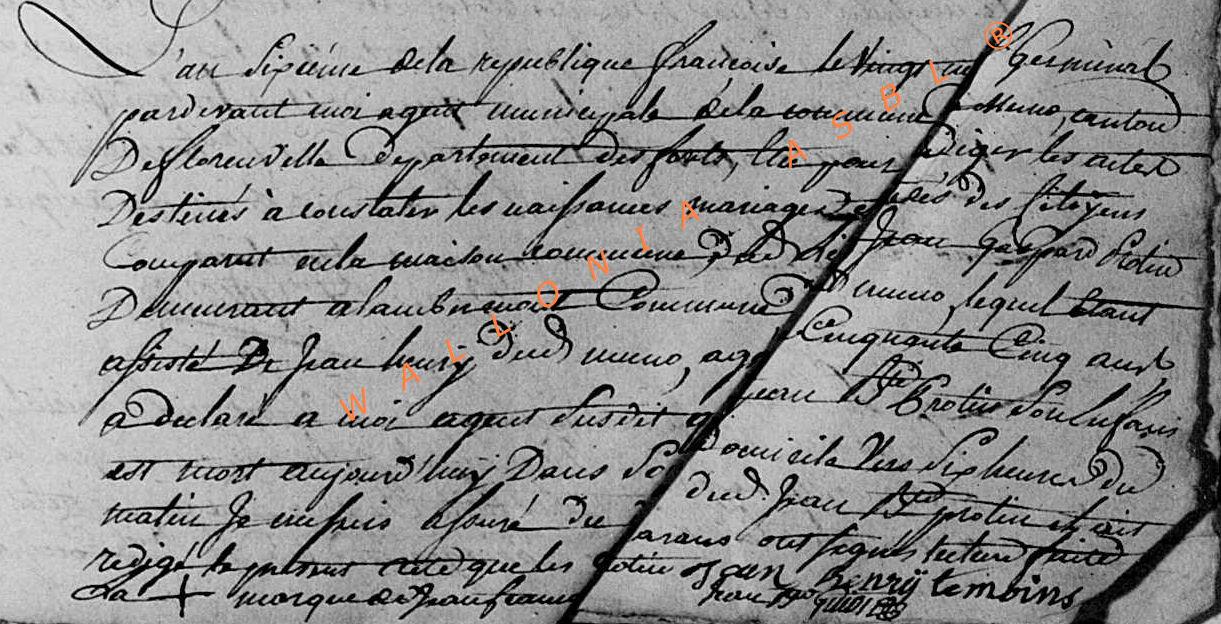 L'an Sixiéme de la republique francoise le Vingt un Germinal
pardevant moi agent municipale de la commune de Muno, canton
De florenville Departement des forêts, Elu pour rediger les actes
Destinés à constater les naissances mariages Décès des Citoyens
Comparut en la maison commune dud. Jean Gaspard Protin
Demeurant a lambermont Commune De muno, lequel Etant
assisté De Jean henry dud muno, agé Cinquante Cinq ans
a declaré a moi agent Susdit Jean Bte Protin Son Enfans
est mort aujourd'huy Dans Son Domicile Vers Six heures du
matin Je me suis assuré du dud. Jean Bte protin et ait
redigé le present acte que les ont signés lecture faite
La + marque de Jean francois Jean henrÿ temoins
WALLONIA ASBL ®